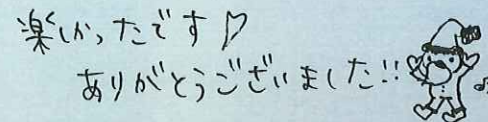 楽しかったです♡
ありがとうございました!!